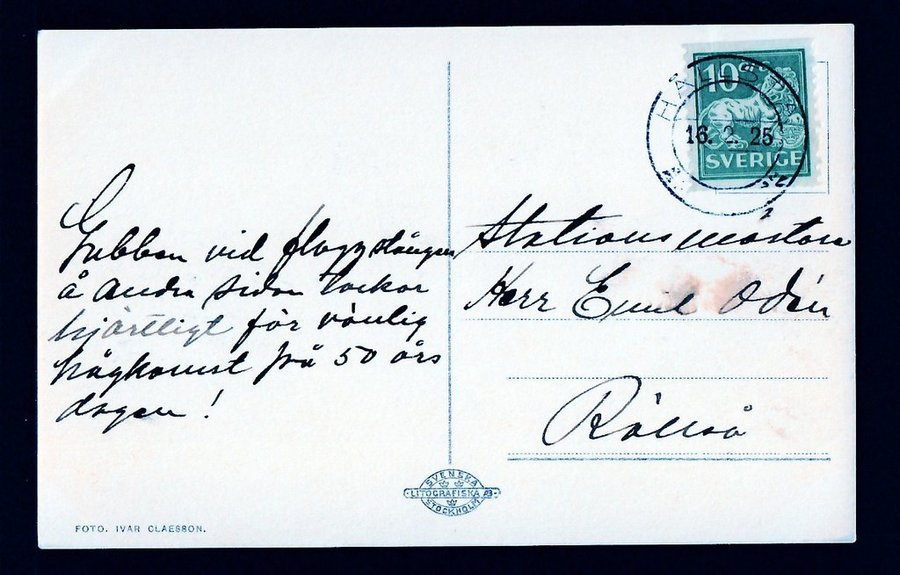 Gubben vid flaggstången
å andra sidan tackar
hjärtligt för vänlig
hågkomst på 50 års
dagen!
10
SVERIGE
16. 2. 25
Stationsmästare
Herr Emil Odén
SVENSKA
LITOGRAFISKA AB
STOCKHOLM
FOTO. IVAR CLAESSON.